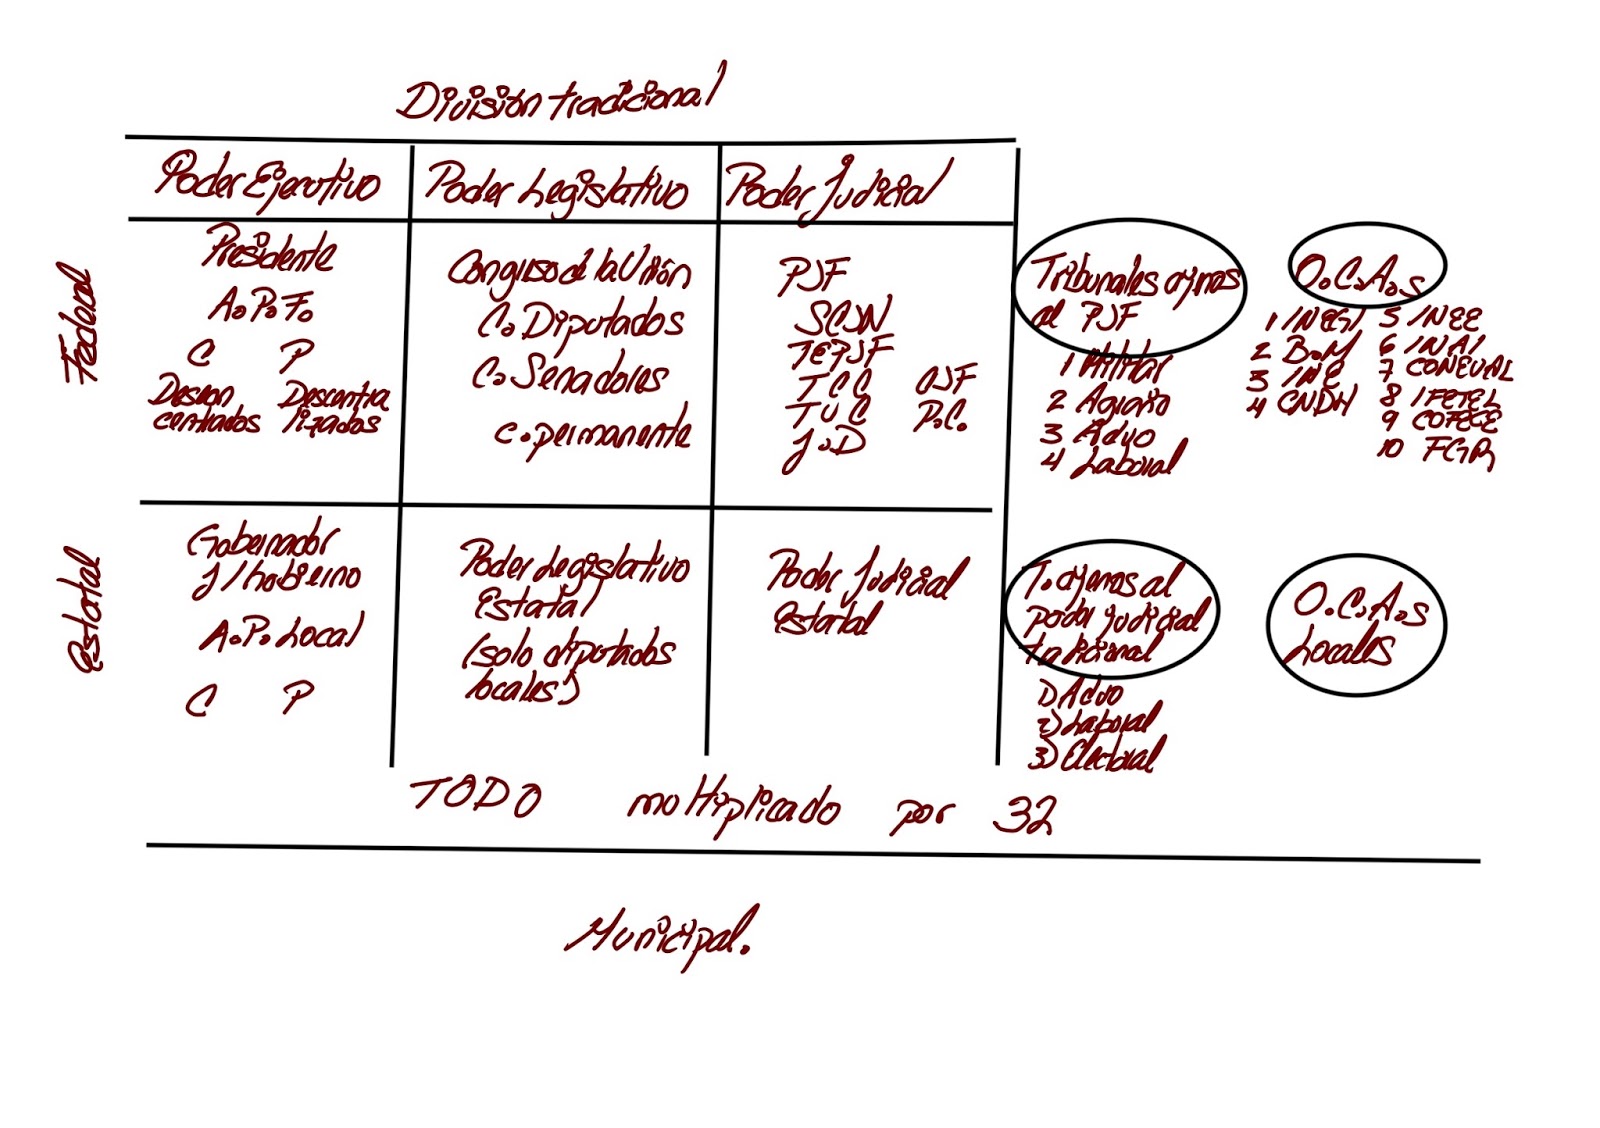 División tradicional
Poder Ejecutivo
Poder Legislativo
Poder Judicial
Federal
Presidente
A.P.F.
C P
Descon Descentra
centrados lizados
Congreso de la Unión
C. Diputados
C. Senadores
C. permanente
PJF
SCJN
TEPJF
TCC CJF
TUC P.C.
J.D
Tribunales ajenos
al PJF
1 Militar
2 Agrario
3 Advo
4 Laboral
O.C.A.s
1 INEGI 5 INEE
2 B.M 6 INAI
3 INE 7 CONEVAL
4 CNDH 8 IFETEL
9 COFECE
10 FGR
Estatal
Gobernador
J/Gobierno
A.P. Local
C P
Poder Legislativo
Estatal
(solo diputados
locales)
Poder Judicial
estatal
T. ajenos al
poder judicial
tradicional
1) Advo
2) Laboral
3) Electoral
O.C.A.s
Locales
TODO multiplicado por 32
Municipal.